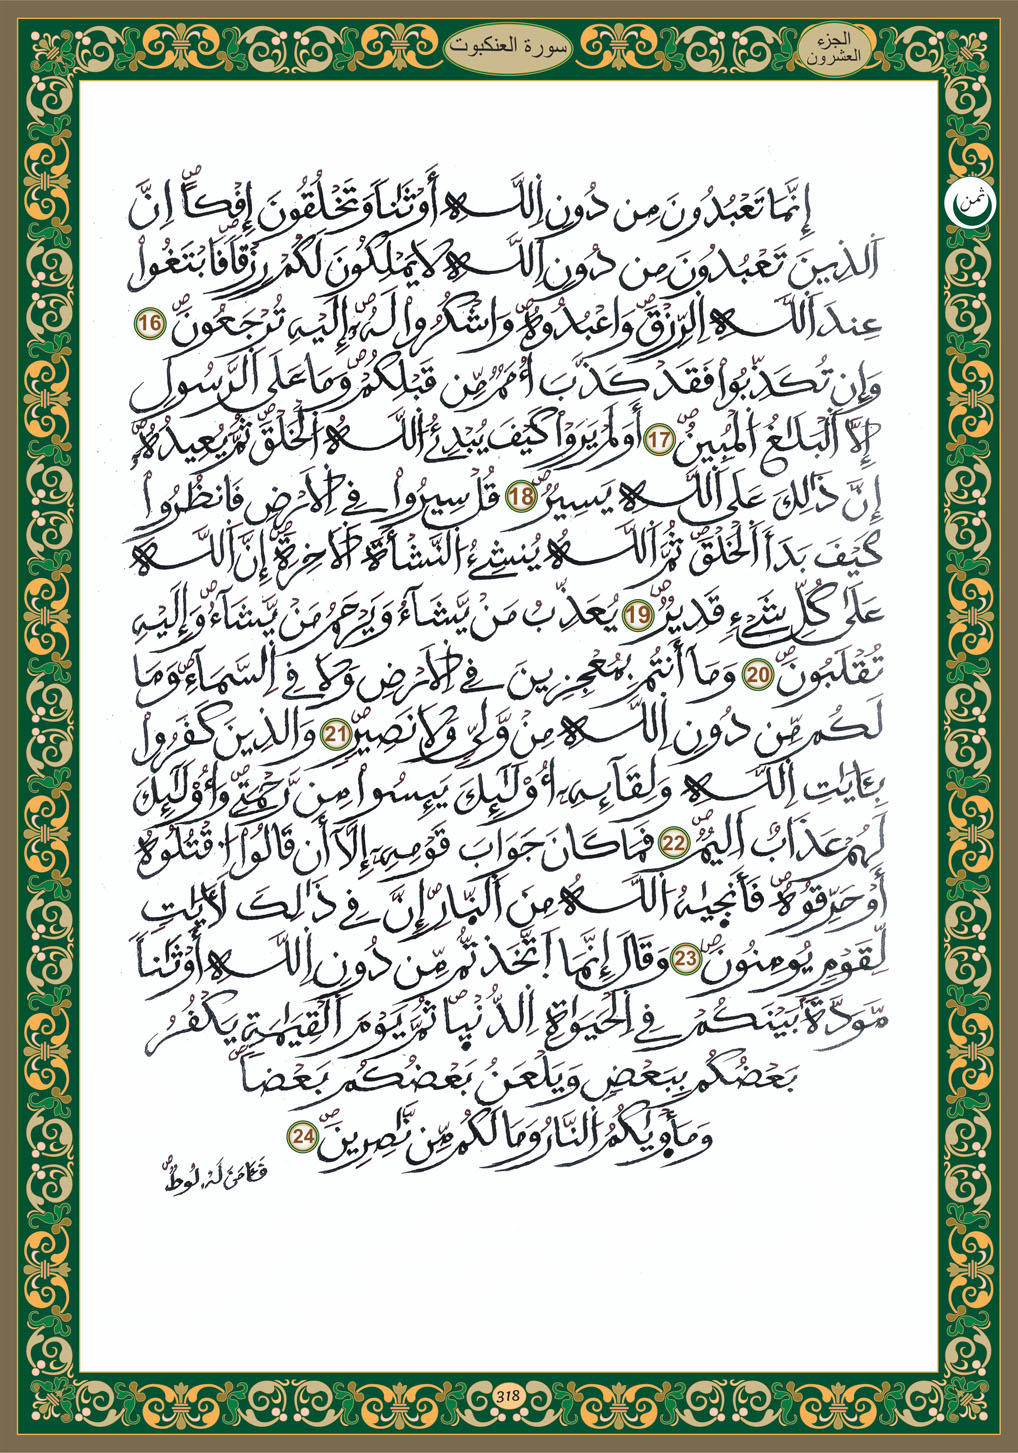 سورة العنكبوت
الجزء
العشرون
ثمن
إِنَّمَا تَعْبُدُونَ مِن دُونِ اِ۬للَّهِ أَوْثَٰناٗ وَتَخْلُقُونَ إِفْكاًۖ اِنَّ
اَ۬لذِينَ تَعْبُدُونَ مِن دُونِ اِ۬للَّهِ لَا يَمْلِكُونَ لَكُمْ رِزْقاٗ فَابْتَغُواْ
عِندَ اَ۬للَّهِ اِ۬لرِّزْقَۖ وَاعْبُدُوهُۖ وَاشْكُرُواْ لَهُۥٓۖ إِلَيْهِ تُرْجَعُونَۖ 16
وَإِن تُكَذِّبُواْ فَقَدْ كَذَّبَ أُمَمٞ مِّن قَبْلِكُمْۖ وَمَا عَلَى اَ۬لرَّسُولِ
إِلَّا اَ۬لْبَلَٰغُ اُ۬لْمُبِينُۖ 17 أَوَلَمْ يَرَوْاْ كَيْفَ يُبْدِئُ اُ۬للَّهُ اُ۬لْخَلْقَۖ ثُمَّ يُعِيدُهُۥٓۖ
إِنَّ ذَٰلِكَ عَلَى اَ۬للَّهِ يَسِيرٞۖ 18 قُلْ سِيرُواْ فِے اِ۬لَارْضِ فَانظُرُواْ
كَيْفَ بَدَأَ اَ۬لْخَلْقَۖ ثُمَّ اَ۬للَّهُ يُنشِۓُ اُ۬لنَّشْأَةَ اَ۬لَاخِرَةَۖ إِنَّ اَ۬للَّهَ
عَلَىٰ كُلِّ شَےْءٖ قَدِيرٞۖ 19 يُعَذِّبُ مَنْ يَّشَآءُ وَيَرْحَمُ مَنْ يَّشَآءُۖ وَإِلَيْهِ
تُقْلَبُونَۖ 20 وَمَآ أَنتُم بِمُعْجِزِينَ فِے اِ۬لَارْضِ وَلَا فِے اِ۬لسَّمَآءِۖ وَمَا
لَكُم مِّن دُونِ اِ۬للَّهِ مِنْ وَّلِيّٖ وَلَا نَصِيرٖۖ 21 وَالذِينَ كَفَرُواْ
بِـَٔايَٰتِ اِ۬للَّهِ وَلِقَآئِهِۦٓ أُوْلَٰٓئِكَ يَئِسُواْ مِن رَّحْمَتِےۖ وَأُوْلَٰٓئِكَ
لَهُمْ عَذَابٌ اَلِيمٞۖ 22 فَمَا كَانَ جَوَابَ قَوْمِهِۦٓ إِلَّآ أَن قَالُواْ اُ۟قْتُلُوهُ
أَوْ حَرِّقُوهُۖ فَأَنج۪يٰهُ اُ۬للَّهُ مِنَ اَ۬لنّ۪ارِۖ إِنَّ فِے ذَٰلِكَ لَأٓيَٰتٖ
لِّقَوْمٖ يُومِنُونَۖ 23 وَقَالَ إِنَّمَا اَ۪تَّخَذتُّم مِّن دُونِ اِ۬للَّهِ أَوْثَٰناٗ
مَّوَدَّةَۢ بَيْنَكُمْ فِے اِ۬لْحَيَوٰةِ اِ۬لدُّنْي۪اۖ ثُمَّ يَوْمَ اَ۬لْقِيَٰمَةِ يَكْفُرُ
بَعْضُكُم بِبَعْضٖ وَيَلْعَنُ بَعْضُكُم بَعْضاٗۖ
وَمَأْو۪يٰكُمُ اُ۬لنَّارُ وَمَا لَكُم مِّن نَّٰصِرِينَۖ 24
فَـَٔامَنَ لَهُۥ لُوطٞۖ
318